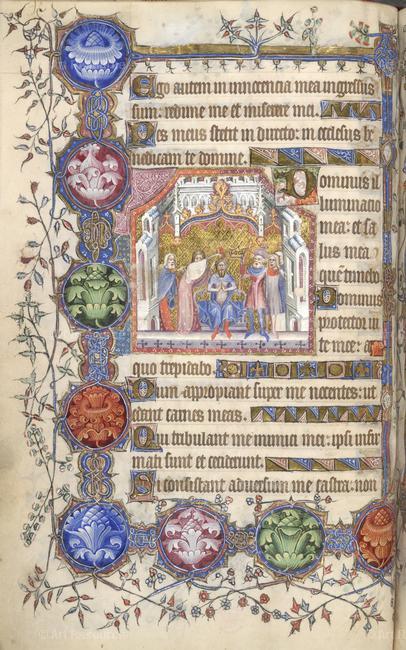 Ego autem in innocencia mea ingressus
sum: redime me et miserere mei.
Pes meus stetit in directo: in ecclesiis be
nedicam te domine.
Dominus il
luminatio
mea: et sa
lus mea
quē timebo
Dominus
protector ui
te mee: a
quo trepidabo.
Dum appropiant super me nocentes: ut
edant carnes meas.
Qui tribulant me inimici mei: ipsi infir
mati sunt et ceciderunt.
Si consistant adversum me castra: non